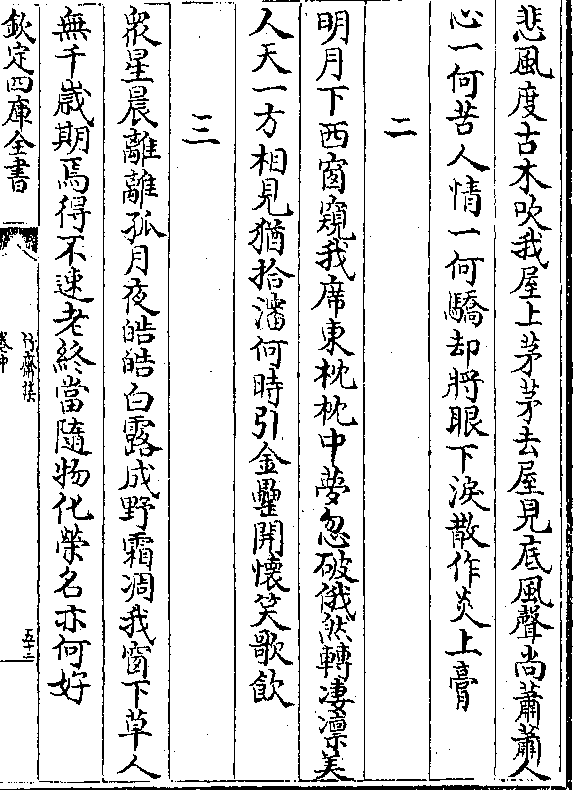 悲風度古木吹我屋上茅茅去屋見底風聲尚蕭蕭人
心一何苦人情一何驕却將眼下淚散作炎上膏
二
明月下西窗窺我席東枕枕中夢忽破俄然轉凄凛美
人天一方相見猶拾瀋何時引金罍開懷笑歌飲
三
衆星晨離離孤月夜皓皓白露成野霜凋我窗下草人
無千嵗期焉得不速老終當隨物化榮名亦何好
欽定四庫全書
竹齋集
卷中
五十三